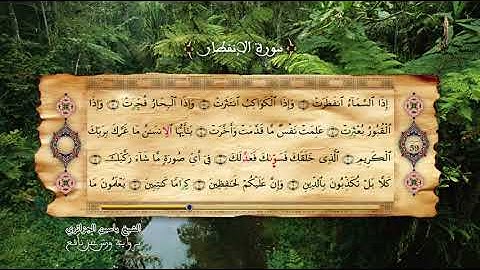 سورة الانفطار
إِذَا السَّمَاءُ انفَطَرَتْ وَإِذَا الْكَوَاكِبُ انتَثَرَتْ وَإِذَا الْبِحَارُ فُجِّرَتْ وَإِذَا
الْقُبُورُ بُعْثِرَتْ عَلِمَتْ نَفْسٌ مَّا قَدَّمَتْ وَأَخَّرَتْ يَٰأَيُّهَا الِانسَٰنُ مَا غَرَّكَ بِرَبِّكَ
الْكَرِيمِ الَّذِي خَلَقَكَ فَسَوَّىٰكَ فَعَدَّلَكَ فِي أَيِّ صُورَةٍ مَّا شَاءَ رَكَّبَكَ
59
كَلَّا بَلْ تُكَذِّبُونَ بِالدِّينِ وَإِنَّ عَلَيْكُمْ لَحَٰفِظِينَ كِرَامًا كَٰتِبِينَ يَعْلَمُونَ مَا
الشيخ ياسين الجزائري
برواية ورش عن نافع